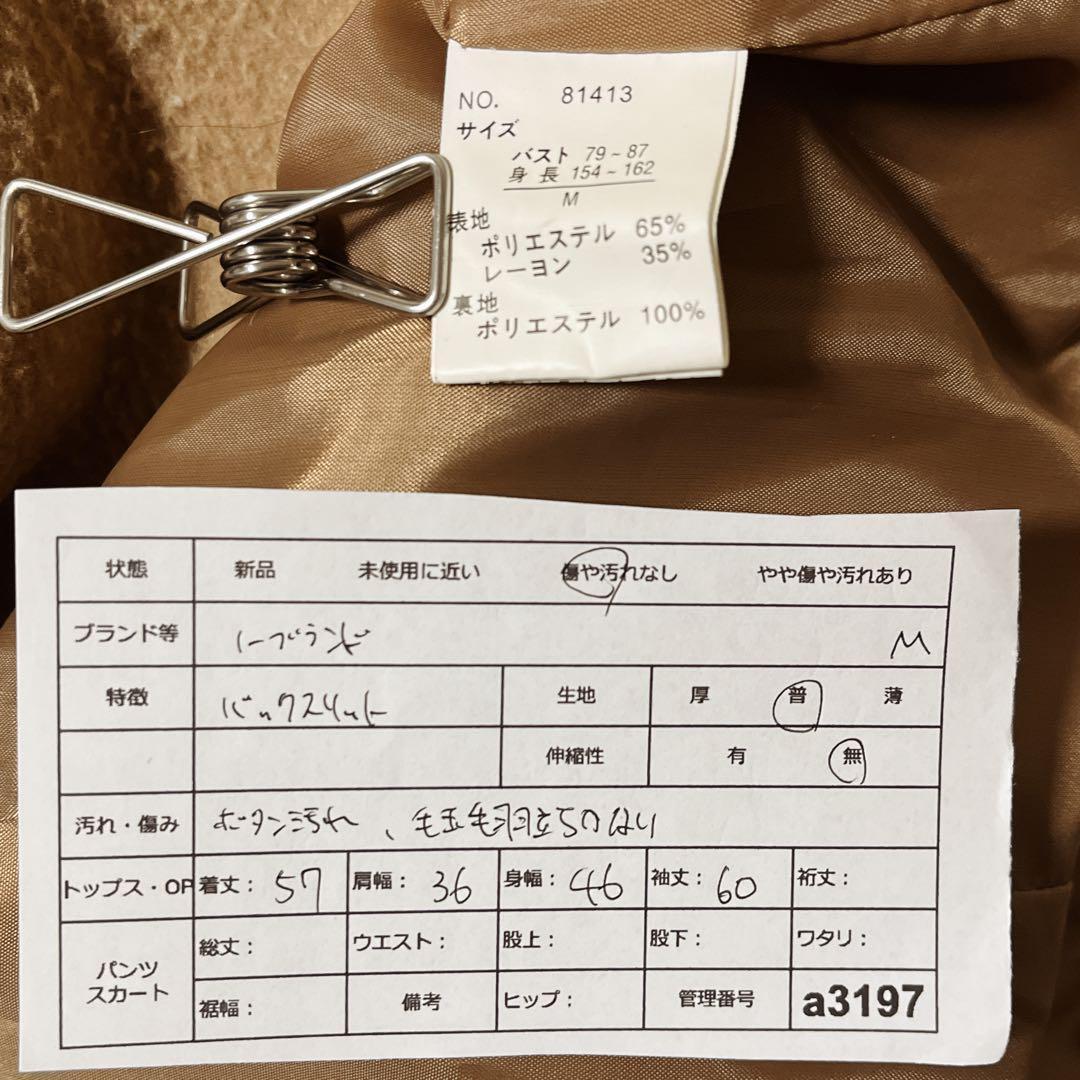 NO. 81413
サイズ
バスト 79~87
身長 154~162
M
表地
ポリエステル 65%
レーヨン 35%
裏地
ポリエステル 100%
状態 新品 未使用に近い 傷や汚れなし やや傷や汚れあり
ブランド等 ノーブランド M
特徴 バックスリット 生地 厚 普 薄
伸縮性 有 無
汚れ・傷み ボタン汚れ、毛玉毛羽立ち
トップス・OP 着丈: 57 肩幅: 36 身幅: 46 袖丈: 60 裄丈:
パンツ スカート 総丈: ウエスト: 股上: 股下: ワタリ:
裾幅: 備考 ヒップ: 管理番号 a3197